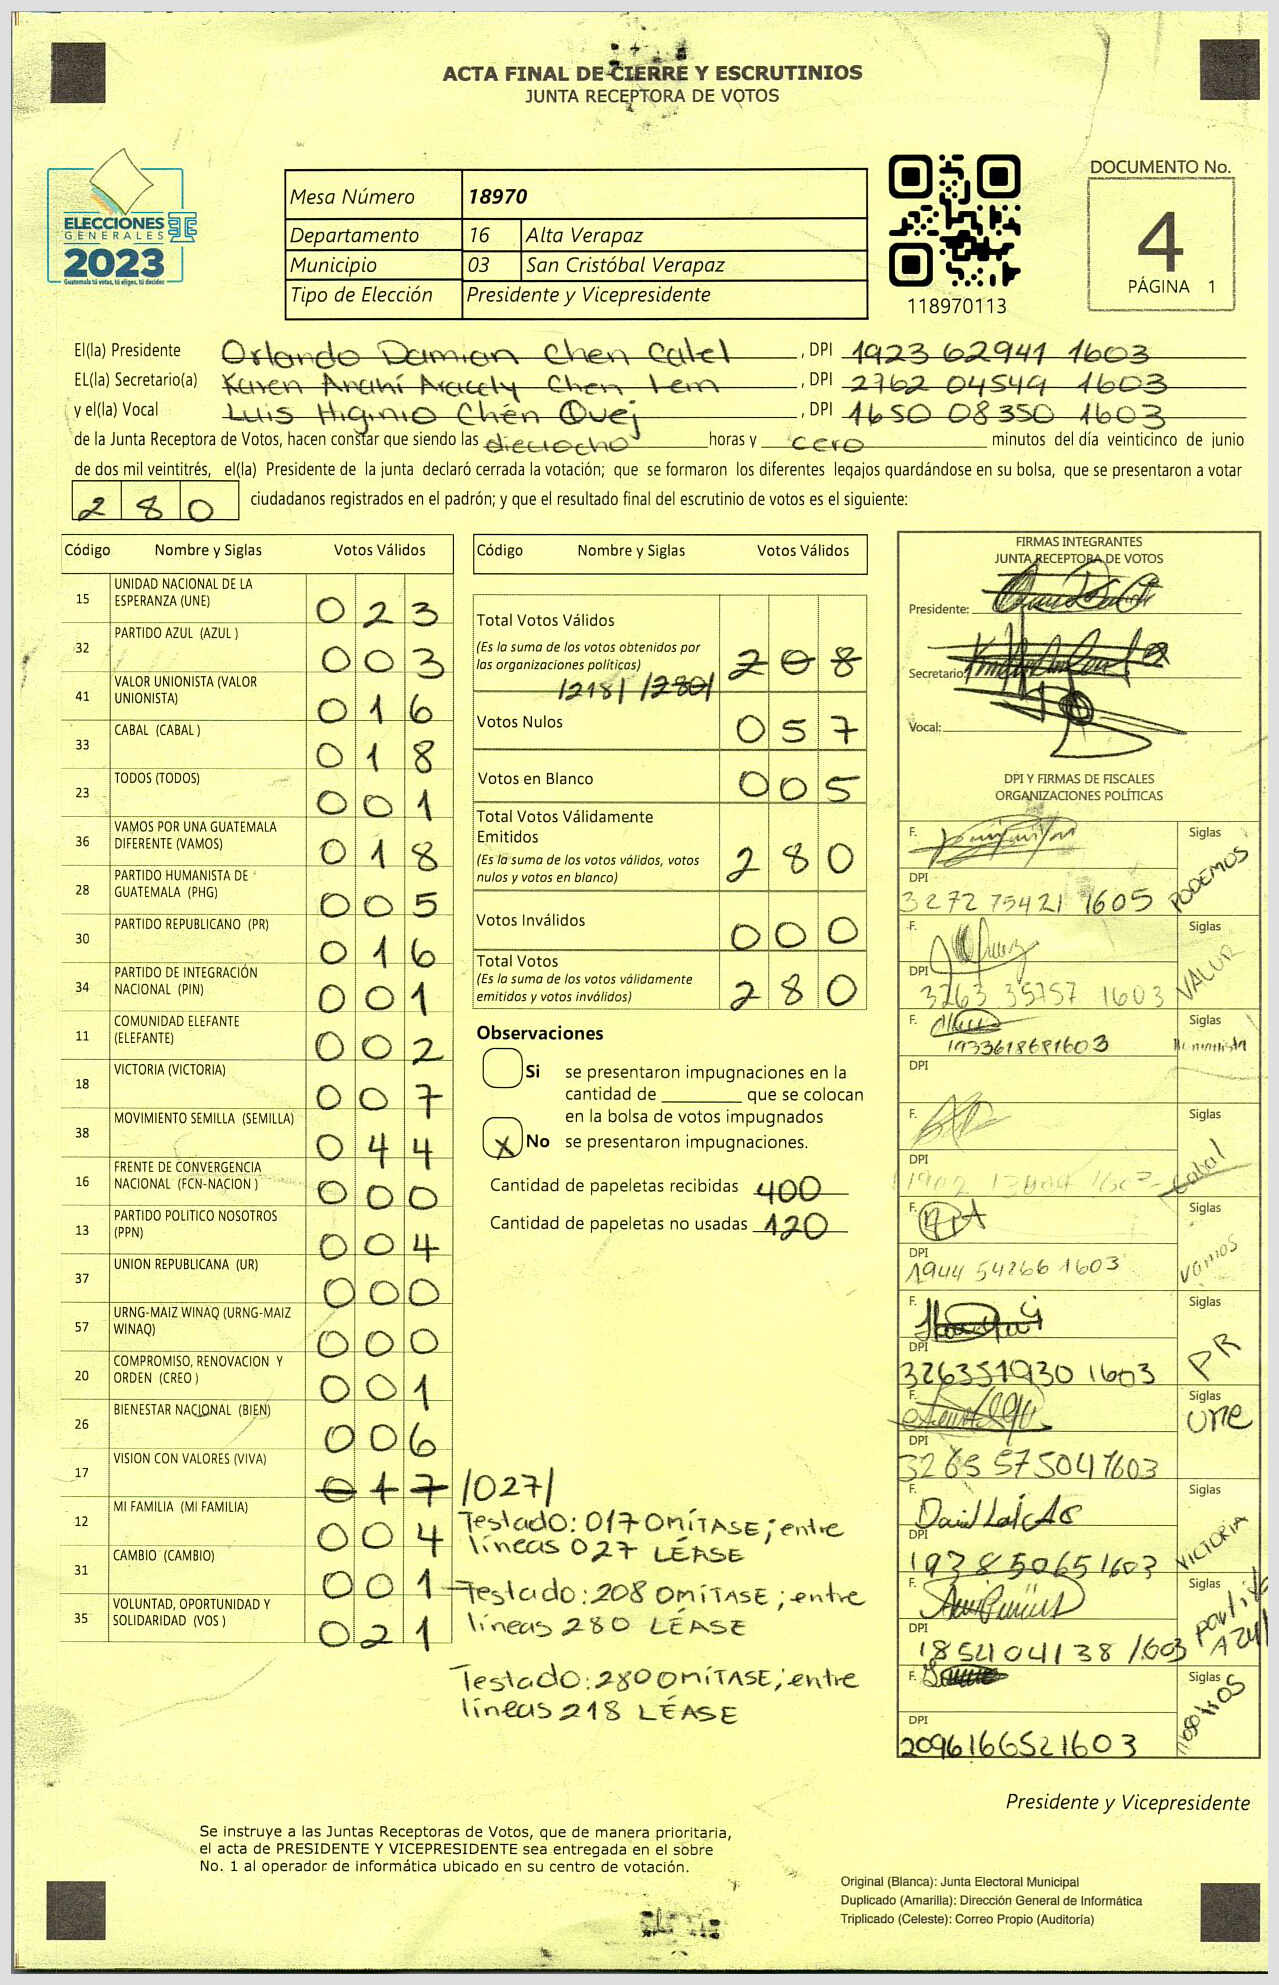 ACTA FINAL DE CIERRE Y ESCRUTINIOS
JUNTA RECEPTORA DE VOTOS
ELECCIONES
GENERALES
2023
Guatemala tú votas, tú eliges, tú decides
Mesa Número 18970
Departamento 16 Alta Verapaz
Municipio 03 San Cristóbal Verapaz
Tipo de Elección Presidente y Vicepresidente
118970113
DOCUMENTO No.
4
PÁGINA 1
El(la) Presidente Orlando Damian Chen Calel, DPI 1923 62941 1603
EL(la) Secretario(a) Karen Anahí Aracely Chen Lem, DPI 2762 04549 1603
y el(la) Vocal Luis Higinio Chén Quej, DPI 1650 08350 1603
de la Junta Receptora de Votos, hacen constar que siendo las dieciocho horas y cero minutos del día veinticinco de junio
de dos mil veintitrés, el(la) Presidente de la junta declaró cerrada la votación; que se formaron los diferentes legajos guardándose en su bolsa, que se presentaron a votar
280 ciudadanos registrados en el padrón; y que el resultado final del escrutinio de votos es el siguiente:
Código Nombre y Siglas Votos Válidos
15 UNIDAD NACIONAL DE LA ESPERANZA (UNE) 023
32 PARTIDO AZUL (AZUL ) 003
41 VALOR UNIONISTA (VALOR UNIONISTA) 016
33 CABAL (CABAL ) 018
23 TODOS (TODOS) 001
36 VAMOS POR UNA GUATEMALA DIFERENTE (VAMOS) 018
28 PARTIDO HUMANISTA DE GUATEMALA (PHG) 005
30 PARTIDO REPUBLICANO (PR) 016
34 PARTIDO DE INTEGRACIÓN NACIONAL (PIN) 001
11 COMUNIDAD ELEFANTE (ELEFANTE) 002
18 VICTORIA (VICTORIA) 007
38 MOVIMIENTO SEMILLA (SEMILLA) 044
16 FRENTE DE CONVERGENCIA NACIONAL (FCN-NACION ) 000
13 PARTIDO POLITICO NOSOTROS (PPN) 004
37 UNION REPUBLICANA (UR) 000
57 URNG-MAIZ WINAQ (URNG-MAIZ WINAQ) 000
20 COMPROMISO, RENOVACION Y ORDEN (CREO ) 001
26 BIENESTAR NACIONAL (BIEN) 006
17 VISION CON VALORES (VIVA) 017 /027/
12 MI FAMILIA (MI FAMILIA) 004
31 CAMBIO (CAMBIO) 001
35 VOLUNTAD, OPORTUNIDAD Y SOLIDARIDAD (VOS ) 021
Código Nombre y Siglas Votos Válidos
Total Votos Válidos
(Es la suma de los votos obtenidos por
las organizaciones políticas) 208
/218/ /280/
Votos Nulos 057
Votos en Blanco 005
Total Votos Válidamente
Emitidos
(Es la suma de los votos válidos, votos
nulos y votos en blanco) 280
Votos Inválidos 000
Total Votos
(Es la suma de los votos válidamente
emitidos y votos inválidos) 280
Observaciones
Si se presentaron impugnaciones en la
cantidad de ________ que se colocan
en la bolsa de votos impugnados
X No se presentaron impugnaciones.
Cantidad de papeletas recibidas 400
Cantidad de papeletas no usadas 120
Testado: 017 OMÍTASE; entre
líneas 027 LÉASE
Testado: 208 OMÍTASE; entre
líneas 280 LÉASE
Testado: 280 OMÍTASE; entre
líneas 218 LÉASE
FIRMAS INTEGRANTES
JUNTA RECEPTORA DE VOTOS
Presidente:
Secretario:
Vocal:
DPI Y FIRMAS DE FISCALES
ORGANIZACIONES POLÍTICAS
F. Siglas PODEMOS
DPI 3272 75421 1605
F. Siglas VALUR
DPI 3263 35757 1603
F. Siglas
1933618681603
DPI
F. Siglas Cabal
DPI
F. Siglas Vamos
DPI 1944 54266 1603
F. Siglas PR
DPI 326351930 1603
F. Siglas une
DPI 3265 57504 1603
F. Siglas VICTORIA
DPI 193850651603
F. Siglas partido AZUL
DPI 1854104138 1603
F. Siglas nosotros
DPI 2096166521603
Presidente y Vicepresidente
Se instruye a las Juntas Receptoras de Votos, que de manera prioritaria,
el acta de PRESIDENTE Y VICEPRESIDENTE sea entregada en el sobre
No. 1 al operador de informática ubicado en su centro de votación.
Original (Blanca): Junta Electoral Municipal
Duplicado (Amarilla): Dirección General de Informática
Triplicado (Celeste): Correo Propio (Auditoría)